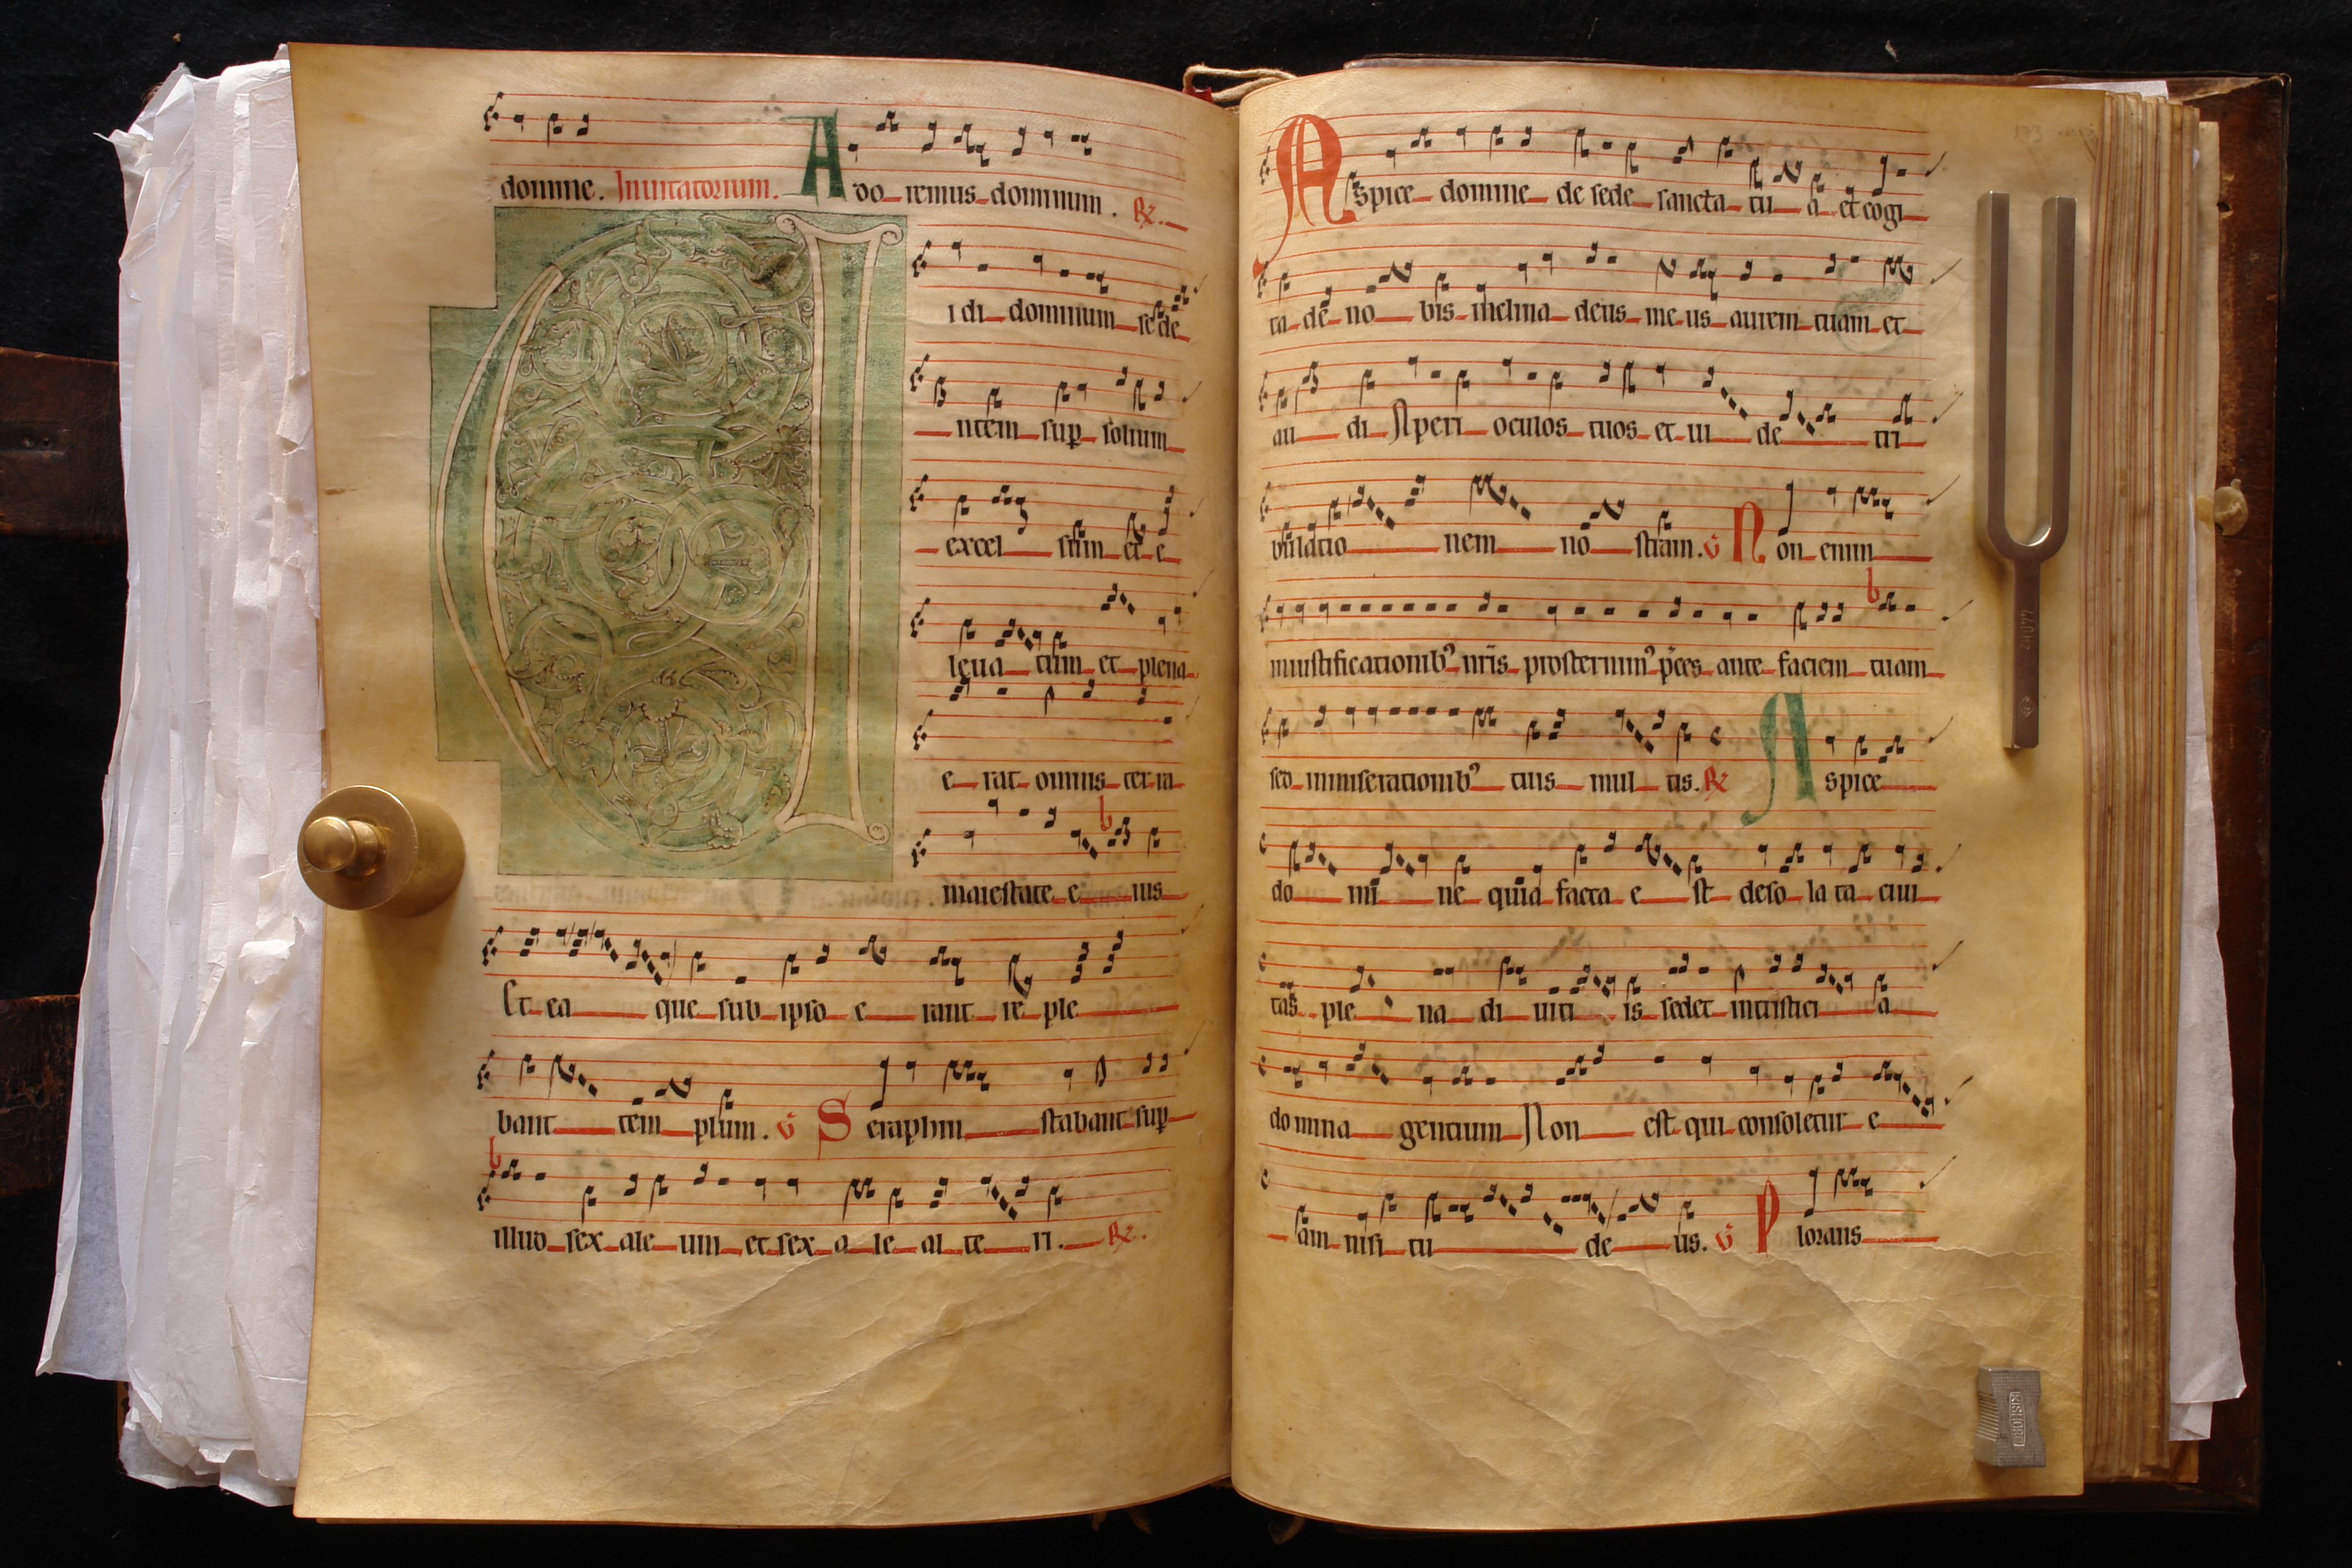 domine. Inuitatorium. Adoremus dominum. R.
Vidi dominum sede
ntem sup solium
excel sum et e
leua tum et plena
e rat omnis terra
maiestate e ius
Et ea que sub ipso e rant re ple
bant tem plum. V Seraphin stabant sup
illud sex ale uni et sex a le al te ri. R.
Aspice domine de sede sancta tu a et cogi
ta de no bis inclina deus me us aurem tuam et
au di Aperi oculos tuos et ui de tri
bulatio nem no stram. V Non enim
iniustificationib' nris prosternim' p̄ces ante faciem tuam
sed inmiserationib' tuis mul tis. R Aspice
do mi ne quia facta e st deso la ta ciui
tas ple na di uiti is sedet intristici a
domina gentium Non est qui consoletur e
am nisi tu de us. V Plorans
KISHORE